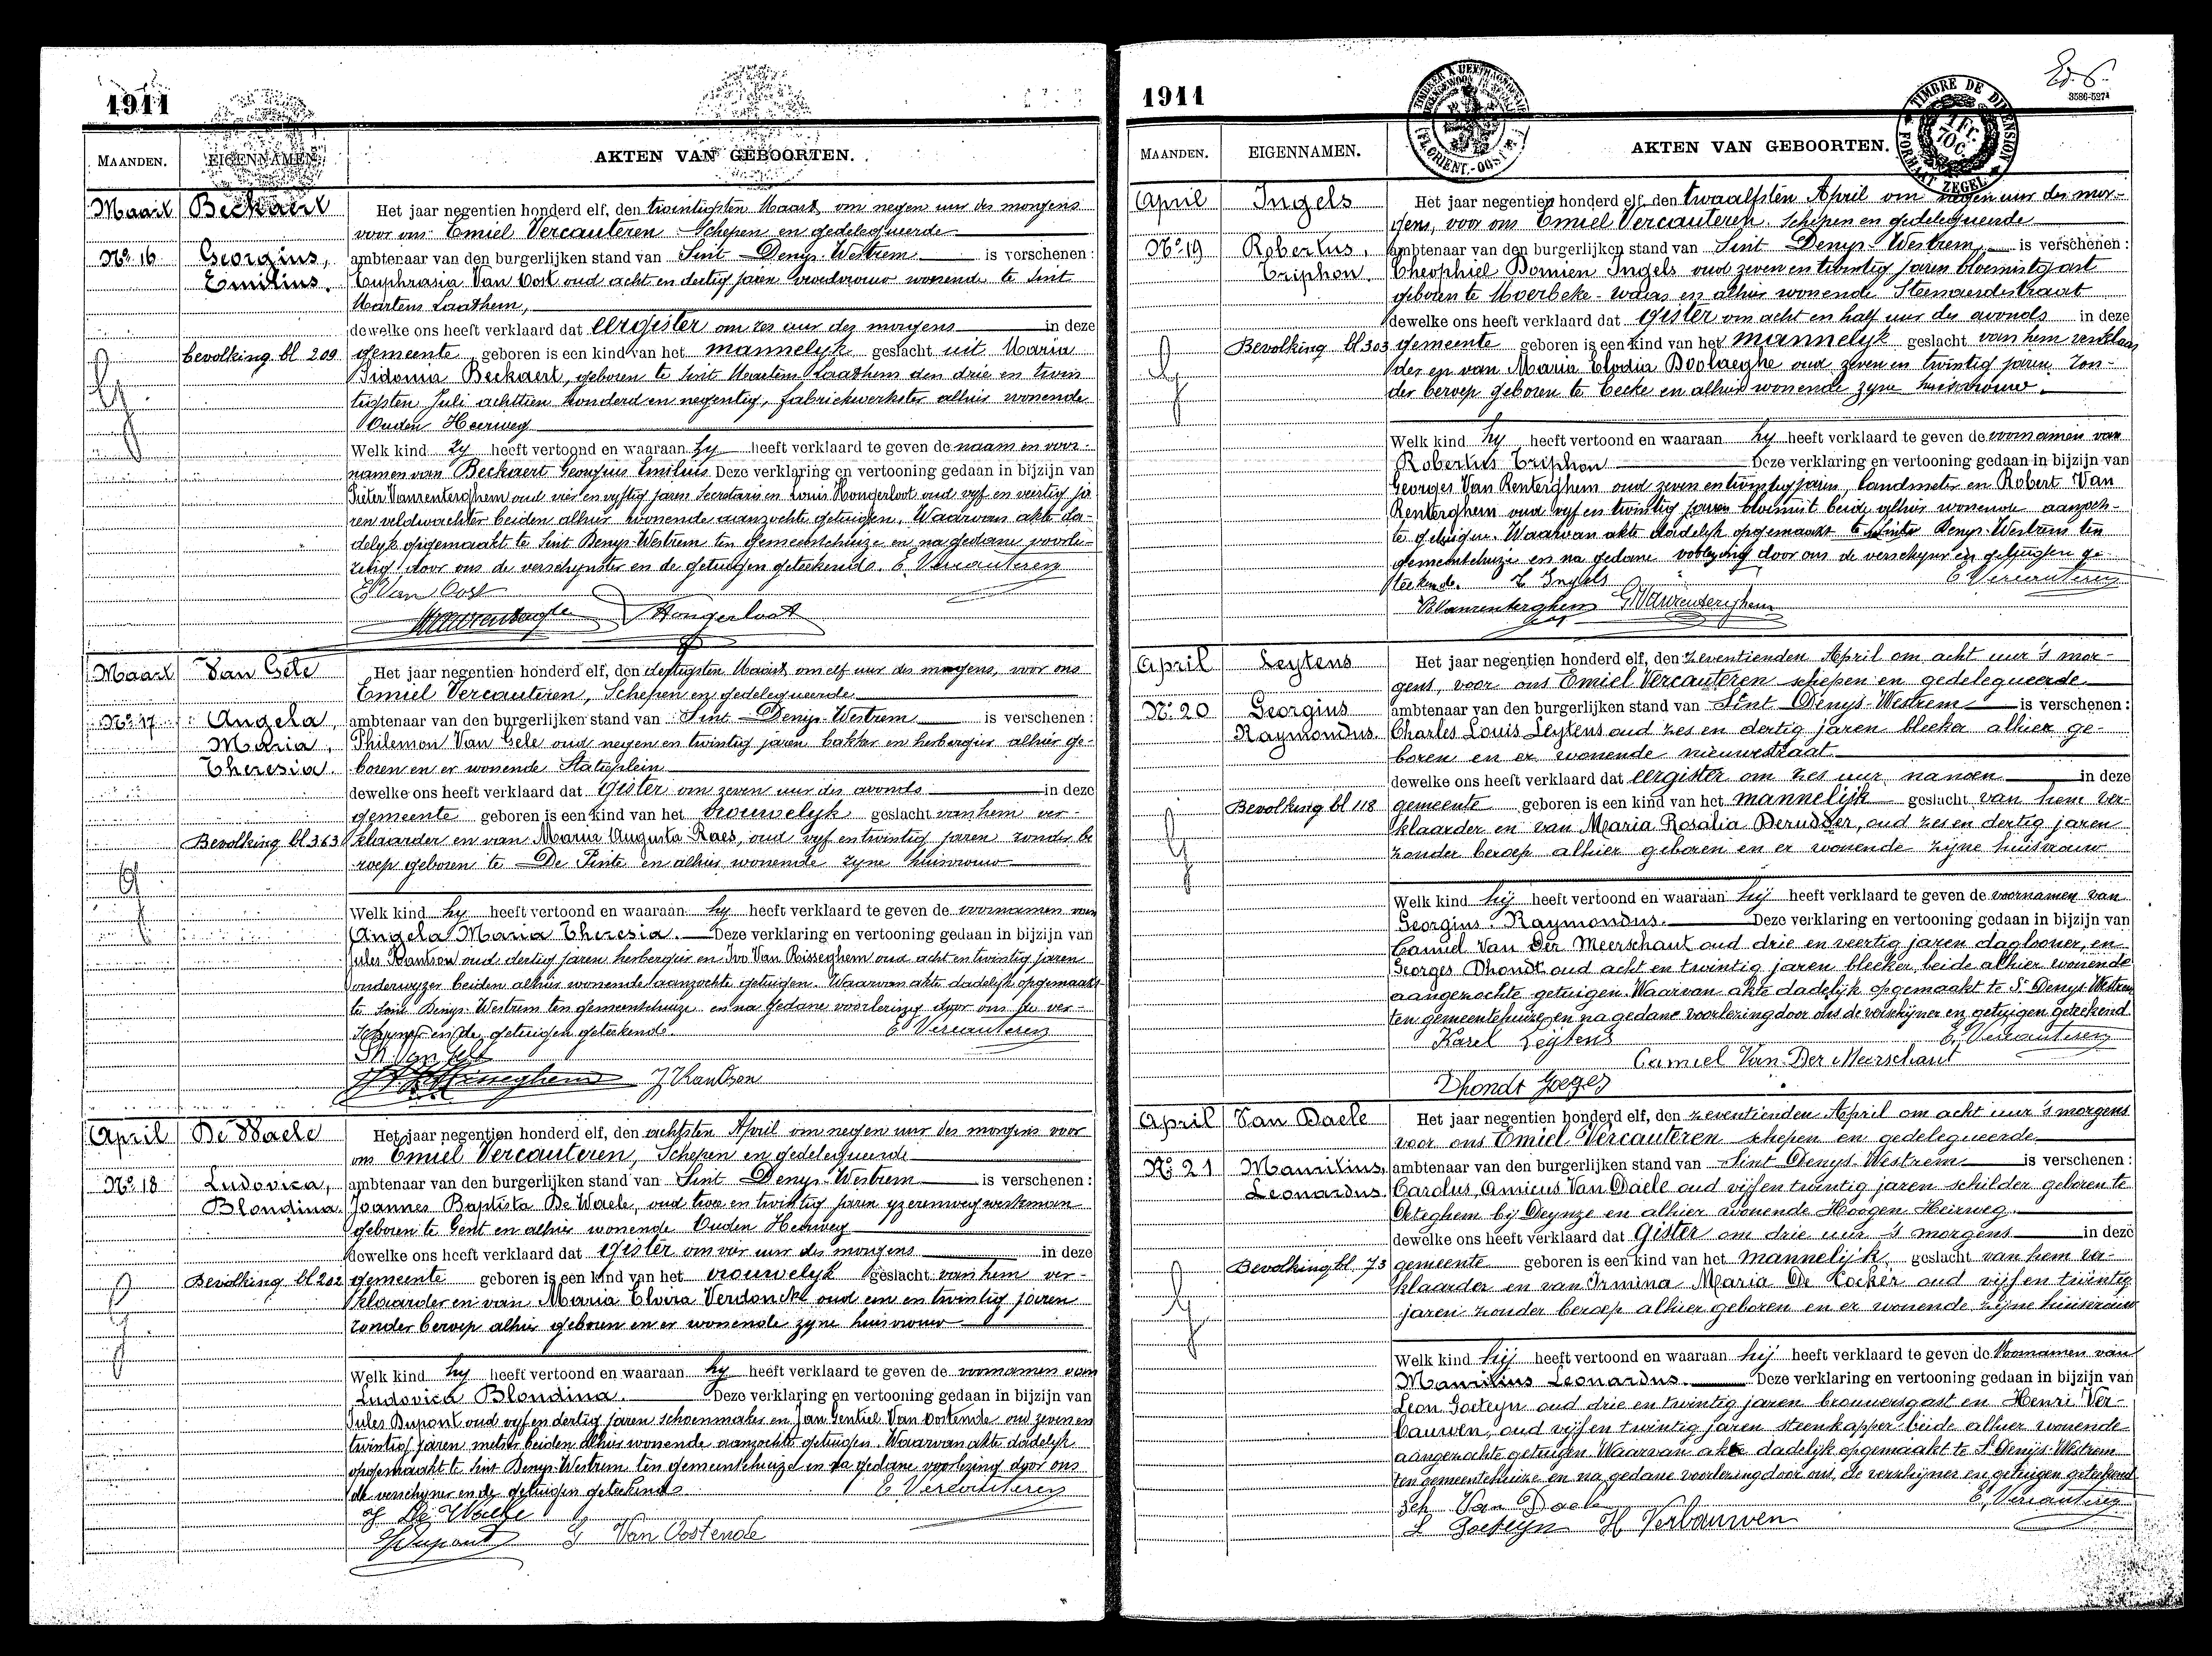 1911
MAANDEN. EIGENNAMEN. AKTEN VAN GEBOORTEN.
Maart Beckaert Het jaar negentien honderd elf, den twintigsten Maart om negen uur des morgens
voor ons Emiel Vercauteren Schepen en gedelegueerde
No 16 Georgius, ambtenaar van den burgerlijken stand van Sint Denys-Westrem is verschenen:
Emilius. Euphrasia Van Oost oud acht en dertig jaren vroedvrouw wonende te Sint
Martens Laathem,
dewelke ons heeft verklaard dat eergister om zes uur des morgens in deze
bevolking bl 209 gemeente geboren is een kind van het mannelyk geslacht uit Maria
Sidonia Beckaert, geboren te Sint Martens Laathem den drie en twin
tigsten Juli achttien honderd en negentig, fabriekwerkster alhier wonende
Ouden Heerweg
Welk kind zy heeft vertoond en waaraan zy heeft verklaard te geven de naam en voor-
namen van Beckaert Georgius Emilius Deze verklaring en vertooning gedaan in bijzijn van
Pieter Vanrenterghem oud vier en vyftig jaren Secretaris en Louis Hongerloot oud vyf en veertig ja
ren veldwachter beiden alhier wonende aanzochte getuigen. Waarvan akte da-
delyk opgemaakt te Sint Denys-Westrem ten gemeentehuize en na gedane voorle-
zing door ons de verschynster en de getuigen geteekend. E. Vercauteren
E Van Oost
Hongerloot
Maart Van Gele Het jaar negentien honderd elf, den dertigsten Maart om elf uur des morgens, voor ons
Emiel Vercauteren, Schepen en gedelegueerde
No 17 Angela, ambtenaar van den burgerlijken stand van Sint Denys-Westrem is verschenen:
Maria, Philemon Van Gele oud negen en twintig jaren bakker en herbergier alhier ge-
Theresia. boren en er wonende Statieplein
dewelke ons heeft verklaard dat gister om zeven uur des avonds in deze
gemeente geboren is een kind van het vrouwelyk geslacht van hem ver-
Bevolking bl 363 klaarder en van Maria Augusta Raes, oud vyf en twintig jaren zonder be
roep geboren te De Pinte en alhier wonende zyne huisvrouw
Welk kind hy heeft vertoond en waaraan hy heeft verklaard te geven de voornamen van
Angela Maria Theresia. Deze verklaring en vertooning gedaan in bijzijn van
Jules oud dertig jaren herbergier en Ivo Van Risseghem oud acht en twintig jaren
onderwyzer beiden alhier wonende aanzochte getuigen. Waarvan akte dadelyk opgemaakt
te Sint Denys-Westrem ten gemeentehuize en na gedane voorlezing door ons de ver-
schyner en de getuigen geteekend. E. Vercauteren
Ph. Van Gele
April De Waele Het jaar negentien honderd elf, den achtsten April om negen uur des morgens voor
ons Emiel Vercauteren, Schepen en gedelegueerde
No 18 Ludovica, ambtenaar van den burgerlijken stand van Sint Denys-Westrem is verschenen:
Blondina. Joannes Baptista De Waele, oud twee en twintig jaren yzerenweg werkman
geboren te Gent en alhier wonende Ouden Heerweg
dewelke ons heeft verklaard dat gister om vier uur des morgens in deze
Bevolking bl 202 gemeente geboren is een kind van het vrouwelyk geslacht van hem ver-
klaarder en van Maria Elvira Verdonckt oud een en twintig jaren
zonder beroep alhier geboren en er wonende zyne huisvrouw
Welk kind hy heeft vertoond en waaraan hy heeft verklaard te geven de voornamen van
Ludovica Blondina. Deze verklaring en vertooning gedaan in bijzijn van
Jules Dupont oud vyf en dertig jaren schoenmaker en Jan Gentiel Van Oostende oud zeven en
twintig jaren metser beiden alhier wonende aanzochte getuigen. Waarvan akte dadelyk
opgemaakt te Sint Denys-Westrem ten gemeentehuize en na gedane voorlezing door ons
de verschyner en de getuigen geteekend. E. Vercauteren
J De Waele
J Dupont G Van Oostende
1911
3586-5274
TIMBRE DE DIMENSION 1 FC. 70 C. FORMAAT ZEGEL
MAANDEN. EIGENNAMEN. AKTEN VAN GEBOORTEN.
April Ingels Het jaar negentien honderd elf, den twaalfsten April om negen uur des mor-
gens, voor ons Emiel Vercauteren. Schepen en gedelegueerde
No 19 Robertus, ambtenaar van den burgerlijken stand van Sint Denys-Westrem, is verschenen:
Triphon. Theophiel Domien Ingels oud zeven en twintig jaren bloemistgast
geboren te Moerbeke-Waas en alhier wonende Steenaerdestraat
dewelke ons heeft verklaard dat gister om acht en half uur des avonds in deze
Bevolking bl 303 gemeente geboren is een kind van het mannelyk geslacht van hem verklaar
der en van Maria Elodia Boolaeghe oud zeven en twintig jaren zon-
der beroep geboren te Eecke en alhier wonende zyne huisvrouw.
Welk kind hy heeft vertoond en waaraan hy heeft verklaard te geven de voornamen van
Robertus Triphon Deze verklaring en vertooning gedaan in bijzijn van
Georges Van Renterghem oud zeven en twintig jaren, landmeter en Robert Van
Renterghem oud vyf en twintig jaren bloemist beide alhier wonende aanzoch-
te getuigen. Waarvan akte dadelyk opgemaakt te Sint Denys-Westrem ten
gemeentehuize en na gedane voorlezing door ons de verschyner en getuigen ge-
teekend. T. Ingels E. Vercauteren
R Vanrenterghem G Vanrenterghem
April Leytens Het jaar negentien honderd elf, den zeventienden April om acht uur 's mor-
gens, voor ons Emiel Vercauteren schepen en gedelegueerde
No 20 Georgius ambtenaar van den burgerlijken stand van Sint Denys-Westrem is verschenen:
Raymondus. Charles Louis Leytens oud zes en dertig jaren bleeker alhier ge-
boren en er wonende nieuwstraat
dewelke ons heeft verklaard dat eergister om zes uur nanoen in deze
Bevolking bl 118 gemeente geboren is een kind van het mannelijk geslacht van hem ver-
klaarder en van Maria Rosalia Derudder, oud zes en dertig jaren
zonder beroep alhier geboren en er wonende zijne huisvrouw
Welk kind hij heeft vertoond en waaraan hij heeft verklaard te geven de voornamen van
Georgius Raymondus. Deze verklaring en vertooning gedaan in bijzijn van
Camiel Van Der Meerschaut oud drie en veertig jaren daglooner, en
Georges Dhondt oud acht en twintig jaren bleeker, beide alhier wonende
aangezochte getuigen. Waarvan akte dadelijk opgemaakt te St Denys-Westrem
ten gemeentehuize, en na gedane voorlezing door ons de verschijner en getuigen geteekend.
Karel Leytens E. Vercauteren
Camiel Van Der Meerschaut
Dhondt
April Van Daele Het jaar negentien honderd elf, den zeventienden April om acht uur 's morgens
voor ons Emiel Vercauteren schepen en gedelegueerde
No 21 Maurilius, ambtenaar van den burgerlijken stand van Sint Denys-Westrem is verschenen:
Leonardus. Carolus Amicus Van Daele oud vijf en twintig jaren schilder geboren te
Peteghem bij Deynze en alhier wonende Hoogen Heirweg.
dewelke ons heeft verklaard dat gister om drie uur 's morgens in deze
Bevolking bl. 73 gemeente geboren is een kind van het mannelijk geslacht van hem ver-
klaarder en van Irmina Maria De Cocker oud vijf en twintig
jaren zonder beroep alhier geboren en er wonende zijne huisvrouw
Welk kind hij heeft vertoond en waaraan hij heeft verklaard te geven de Voornamen van
Maurilius Leonardus. Deze verklaring en vertooning gedaan in bijzijn van
Leon Goeteyn oud drie en twintig jaren brouwersgast en Henri Ver-
bauwen, oud vijf en twintig jaren steenkapper beide alhier wonende
aangezochte getuigen. Waarvan akte dadelijk opgemaakt te St Denys-Westrem
ten gemeentehuize en na gedane voorlezing door ons, de verschijner en getuigen geteekend
Van Daele E. Vercauteren
L Goeteyn H Verbauwen